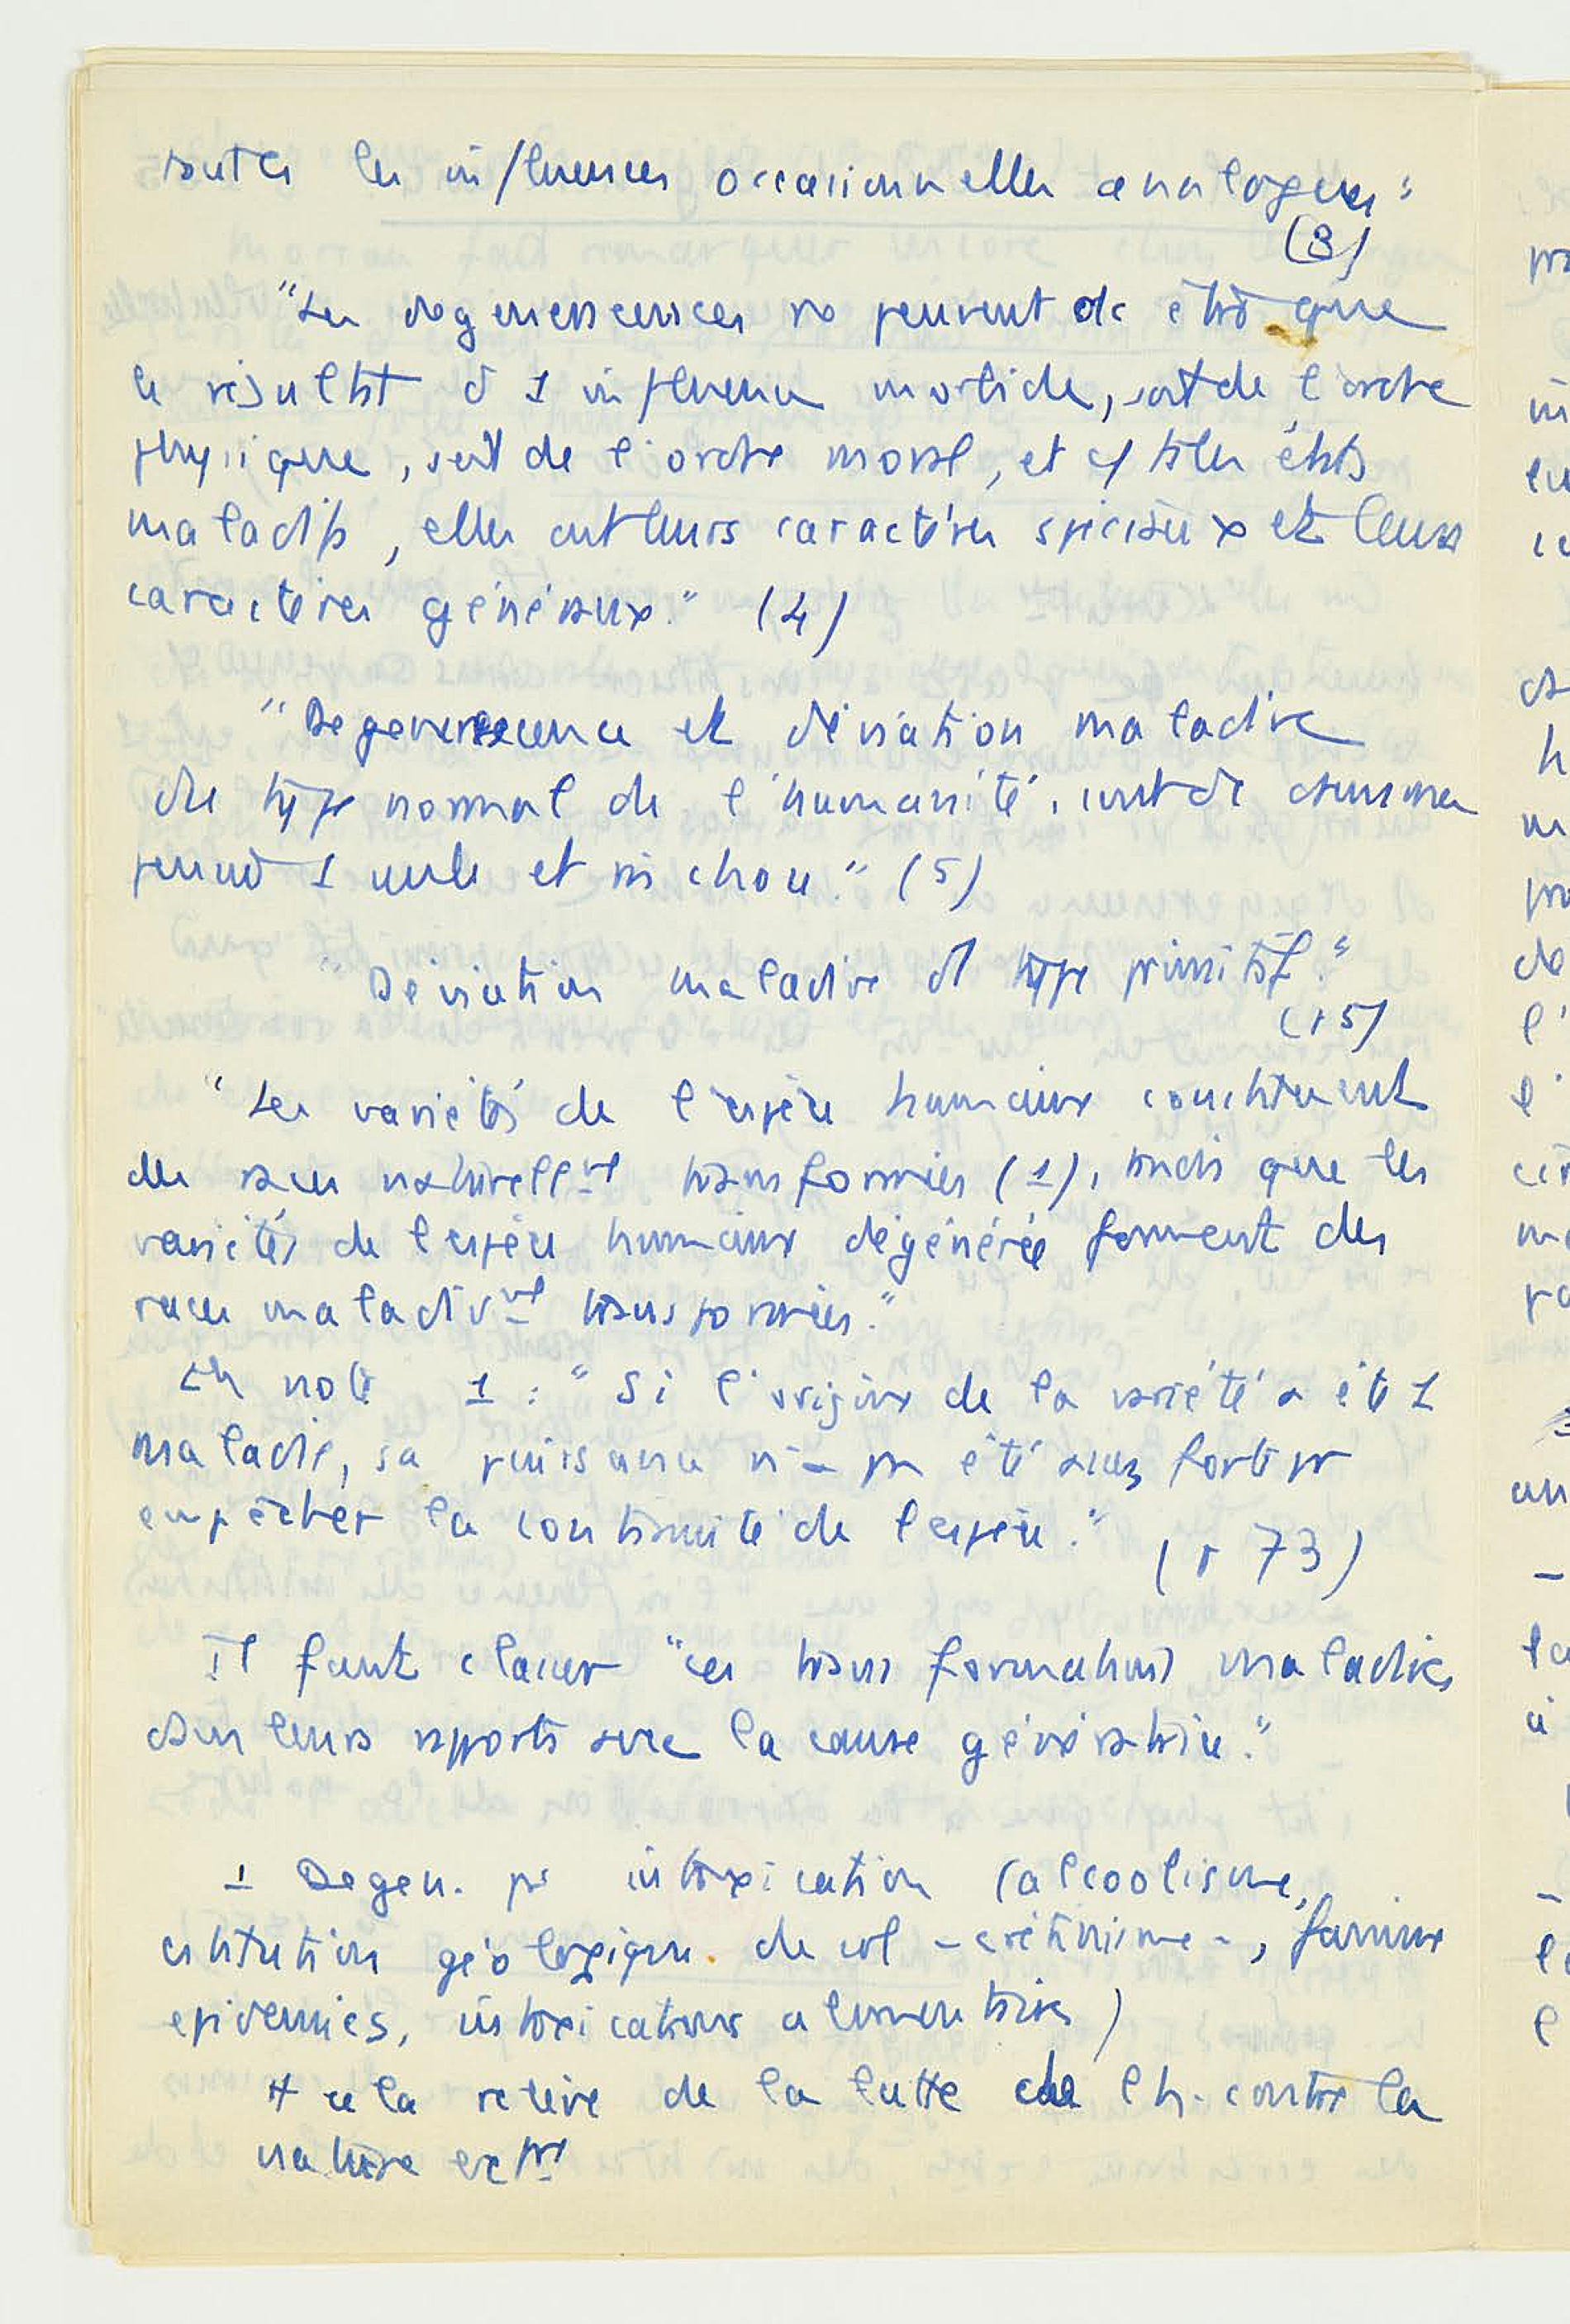 toutes les influences occasionnelles analogues"
(3)
"Les dégénérescences ne peuvent dc être que
le résultat d'1 influence morbide, soit de l'ordre
physique, soit de l'ordre moral, et c/ ts les états
maladifs, elles ont leurs caractères spéciaux et leurs
caractères généraux." (4)
"Dégénérescence et déviation maladive
du type normal de l'humanité, sont dc dans ma
pensée 1 seule et m̂ chose." (5)
"Déviation maladive d'1 type primitif."
(15)
"Les variétés de l'espèce humaine constituent
des races naturellemt transformées (1), tandis que les
variétés de l'espèce humaine dégénérée forment des
races maladivmt transformées."
En note 1 : "Si l'origine de la variété a été 1
maladie, sa puissance n'a pas été assez forte pr
empêcher la continuité de l'espèce."
(p 73)
Il faut classer "ces transformations maladives
dans leurs rapports avec la cause génératrice."
1 Dégén. pr intoxication (alcoolisme,
cstitution géologique du sol - crétinisme -, famine
épidémies, intoxications alimentaires)
tt cela relève de la lutte de l'h. contre la
nature extre